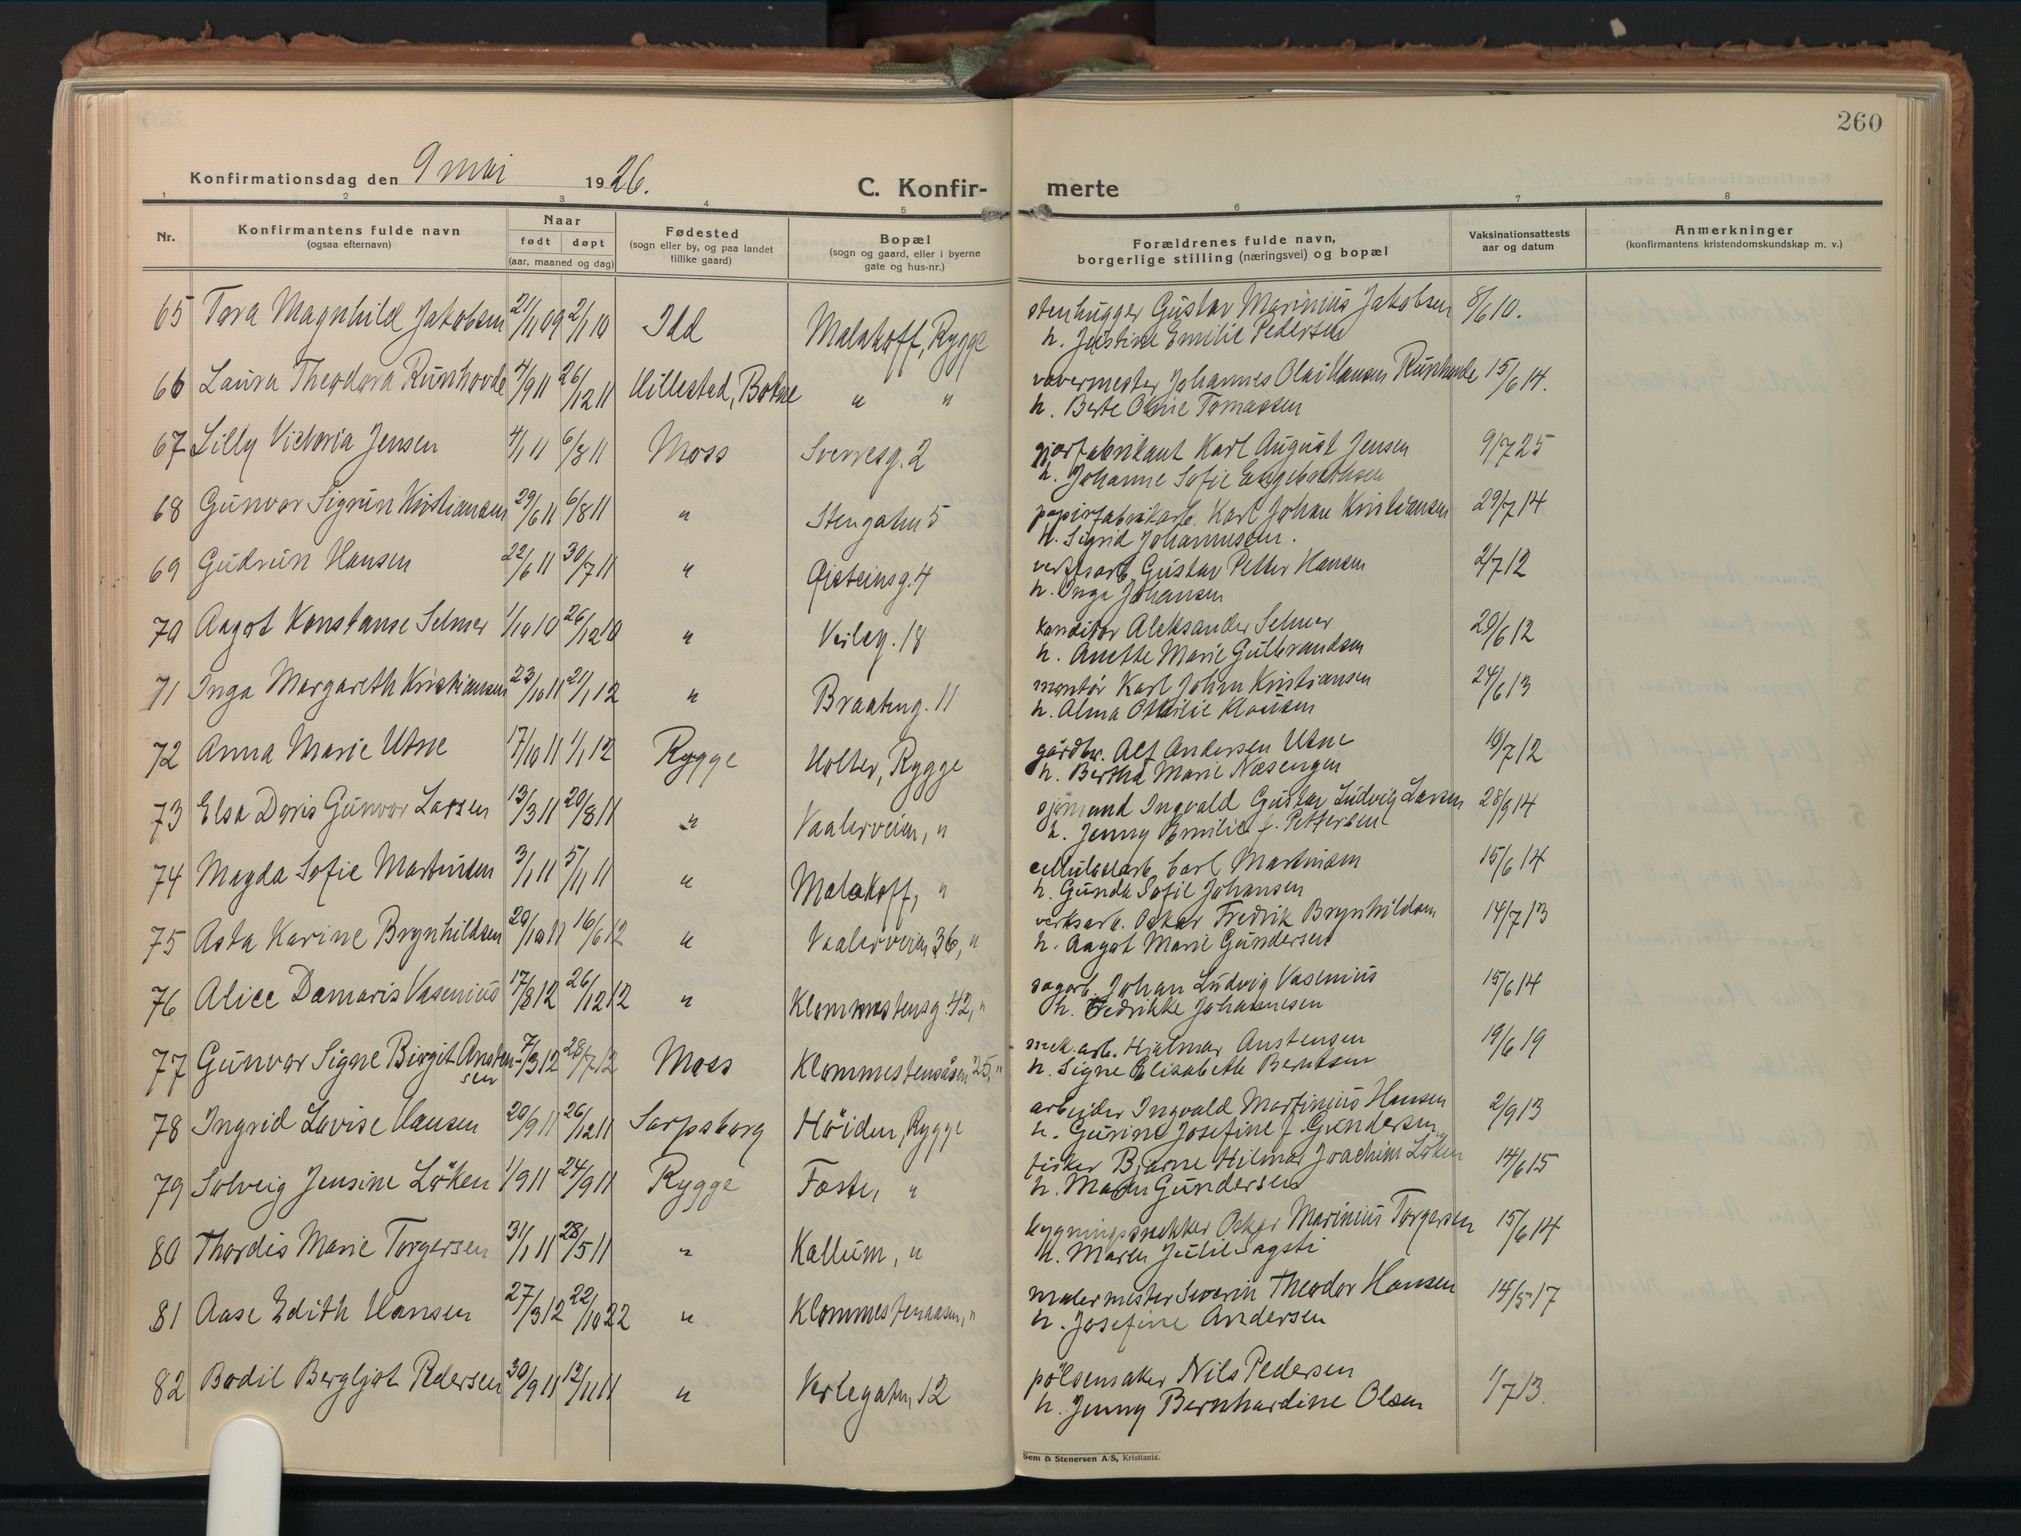 260
Konfirmationsdag den 9 mai 1926.
C. Konfir- merte
1 2 3 4 5 6 7 8
Nr. Konfirmantens fulde navn (ogsaa efternavn) Naar født døpt (aar, maaned og dag) Fødested (sogn eller by, og paa landet tillike gaard) Bopæl (sogn og gaard, eller i byerne gate og hus-nr.) Forældrenes fulde navn, borgerlige stilling (næringsvei) og bopæl Vaksinationsattests aar og datum Anmerkninger (konfirmantens kristendomskundskap m. v.)
65 Tora Magnhild Jakobsen 21/11 09 2/1 10 Idd Malakoff, Rygge stenhugger Gustav Marinius Jakobsen 8/6 10.
h. Justine Emilie Pedersen
66 Laura Theodora Runhovde 4/9 11 26/12 11 Hillestad, Botne " " vævermester Johannes Olai Hansen Runhovde 15/6 14.
h. Berte Oline Tomassen
67 Lilly Victoria Jensen 4/1 11 6/8 11 Moss Sverresg. 2 gjørfabrikant Karl August Jensen 9/7 25
h. Johanne Sofie Engebretsen
68 Gunvor Sigrun Kristiansen 29/6 11 6/8 11 " Stengaten 5 papirfabrikarb. Karl Johan Kristiansen 29/7 14
h. Sigrid Johannessen.
69 Gudrun Hansen 22/6 11 30/7 11 " Øisteinsg. 4 verftsarb. Gustav Petter Hansen 2/7 12
h. Inga Johansen
70 Aagot Konstanse Selmer 1/10 10 26/12 10 " Verleg. 18 konditor Aleksander Selmer 29/6 12
h. Anette Marie Gulbrandsen
71 Inga Margareth Kristiansen 23/10 11 21/1 12 " Braateng. 11 montør Karl Johan Kristiansen 24/6 13
h. Alma Othilie Klausen
72 Anna Marie Utne 17/10 11 1/1 12 Rygge Holter, Rygge gårdbr. Alf Andersen Utne 10/7 12
h. Bertha Marie Næsengen
73 Elsa Doris Gunvor Larsen 13/3 11 20/8 11 " Vaalerveien, " sjömand Ingvald Gustav Ludvig Larsen 28/9 14
h. Jenny Emilie f. Pettersen
74 Magda Sofie Martinsen 3/1 11 5/11 11 " Malakoff, " cellulosearb. Carl Martinsen 15/6 14
h. Gunda Sofie Johansen
75 Asta Karine Brynhildsen 20/10 11 16/6 12 " Vaalerveien 36, " verksarb. Oskar Fredrik Brynhildsen 14/7 13
h. Aagot Marie Gundersen
76 Alice Damaris Vasenius 17/8 12 26/12 12 " Klommestensg. 42, " sagarb. Johan Ludvig Vasenius 15/6 14
h. Fredrikke Johannesen
77 Gunvor Signe Birgit Austen- 7/3 12 28/7 12 Moss Klommestensåsen 25, " mek. arb. Hjalmar Austensen 19/6 19
sen h. Signe Elisabeth Berntsen
78 Ingrid Lovise Hansen 20/9 11 26/12 11 Sarpsborg Höiden, Rygge arbeider Ingvald Martinius Hansen 2/9 13
h. Gurine Josefine f. Gundersen
79 Solveig Jensine Löken 1/9 11 24/9 11 Rygge Foster, " fisker Bjarne Hilmar Joachim Löken 14/6 15
h. Maren Gundersen
80 Thordis Marie Torgersen 31/1 11 28/5 11 " Kallum, " bygningssnekker Oskar Marinius Torgersen 15/6 14
h. Maren Julie Sagsti
81 Aase Edith Hansen 27/3 12 22/10 22 " Klommestenaasen, " malermester Severin Theodor Hansen 14/5 17
h. Josefine Andersen
82 Bodil Bergljot Pedersen 30/9 11 12/11 11 " Verlegaten 12 pölsemaker Nils Pedersen 1/7 13.
h. Jenny Bernhardine Olsen
Sem & Stenersen A/S, Kristiania.